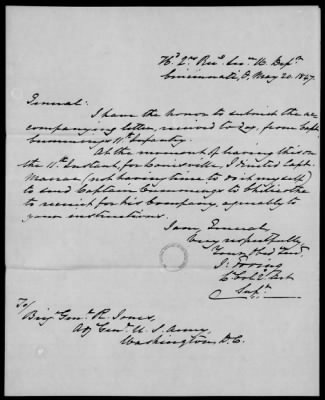 Hd. 2nd Recg. Servce. W. Dept.
Cincinnati, O, May 20. 1847.
General:
I have the honor to submit the ac-
companying letter, received to day, from Capt.
Cummings 11th Infantry.
At the moment of leaving this on
the 11th Instant, for Louisville, I directed Capt.
Macrae (not having time to do it myself)
to send Captain Cummings to Chilicothe
to recruit for his Company, agreeably to
your instructions.
I am, General,
Very respectfully
Your Obd. Servt.
Lt. Col. 2d Art
Supt.
To/
Brigr. Genl. R. Jones,
Adjt. Genl. U. S. Army,
Washington, D. C.